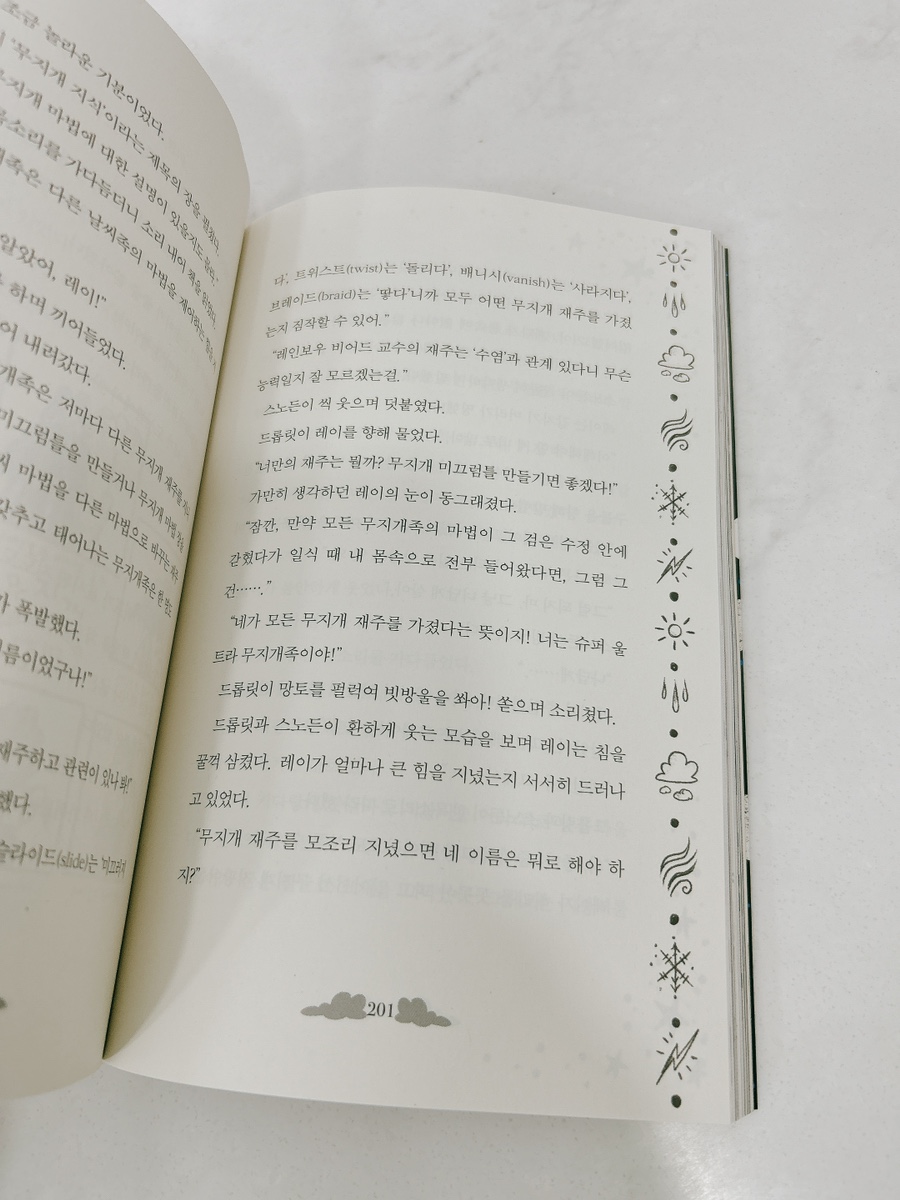 조금 놀라운 기분이었다.
'무지개 지식'이라는 제목의 장을 펼쳤다.
무지개 마법에 대한 설명이 있을지도 몰라."
목소리를 가다듬더니 소리 내어 책을 읽었다.
다른 날씨족의 마법을
알았어, 레이!"
하며 끼어들었다.
내려갔다.
저마다 다른 무지개 재주를
미끄럼틀을 만들거나 무지개
마법을 다른 마법으로 바꾸는
갖추고 태어나는 무지개족은
폭발했다.
이름이었구나!"
재주하고 관련이 있나 봐!"
했다.
슬라이드(slide)는 '미끄러지
다', 트위스트(twist)는 '돌리다', 배니시(vanish)는 '사라지다',
브레이드(braid)는 '땋다'니까 모두 어떤 무지개 재주를 가졌
는지 짐작할 수 있어."
"레인보우 비어드 교수의 재주는 '수염'과 관계 있다니 무슨
능력일지 잘 모르겠는걸."
스노든이 씩 웃으며 덧붙였다.
드롭릿이 레이를 향해 물었다.
"너만의 재주는 뭘까? 무지개 미끄럼틀 만들기면 좋겠다!"
가만히 생각하던 레이의 눈이 동그래졌다.
"잠깐, 만약 모든 무지개족의 마법이 그 검은 수정 안에
갇혔다가 일식 때 내 몸속으로 전부 들어왔다면, 그럼 그
건……."
"네가 모든 무지개 재주를 가졌다는 뜻이지! 너는 슈퍼 울
트라 무지개족이야!"
드롭릿이 망토를 펄럭여 빗방울을 쏴아! 쏟으며 소리쳤다.
드롭릿과 스노든이 환하게 웃는 모습을 보며 레이는 침을
꿀꺽 삼켰다. 레이가 얼마나 큰 힘을 지녔는지 서서히 드러나
고 있었다.
"무지개 재주를 모조리 지녔으면 네 이름은 뭐로 해야 하
지?"
201